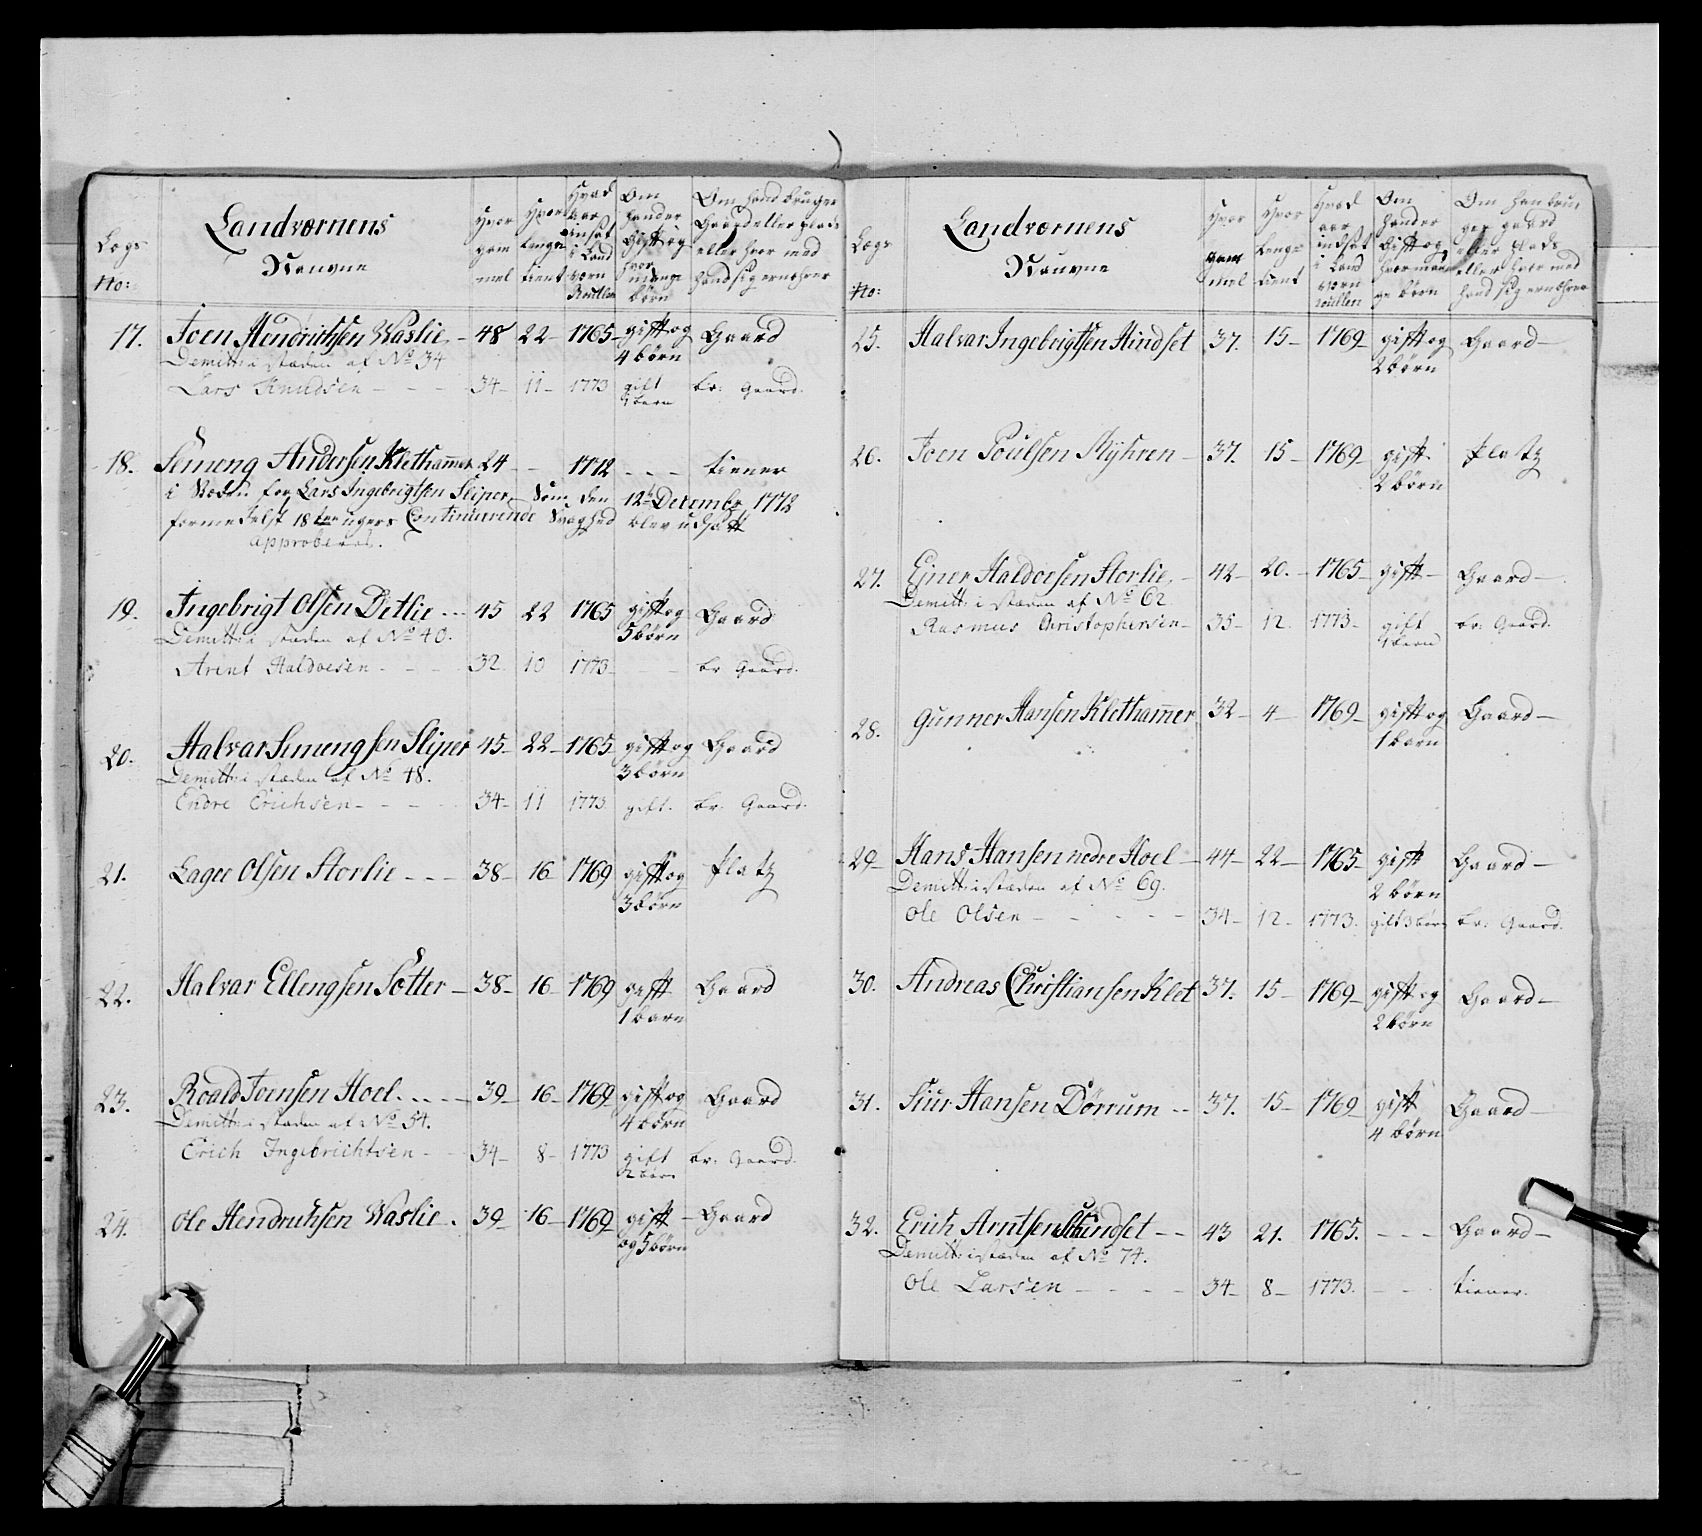 Lægs No:
Landværnens Nauvne
Hvor gam mel
Hvor lenge tient
Hvad aar indsat i Land værn Rullen
Om hand er gift og hvor mange børn
Om hand bruger Gaard eller Plads eller hvor med hand sig ernærer
17. Joen Hendrichsen Waslie - 48 22 1765 gift og Gaard
4 børn
Demitt: i stæden af No 34
Lars Knudsen - - - 34 - 11 - 1773 gift br: Gaard.
1 barn
18. Simeng Andersen Klethammer 24 - - 1772 - - - tiener
i Stæden for Lars Ingebrigtsen Sliper, Som den 12te Decembr 1772
formedelst 18 ten ugers Continuerende Svaghed blev udsatt
approberes.
19. Ingebrigt Olsen Ditlie - - - 45 22 1765 gift og Gaard
5 børn
Demitt: i stæden af No 40.
Arent Haldoesen - - - 32 10 1773 - br Gaard.
20. Halvar Simengsen Sliper 45 - 22 - 1765 gift og Gaard
3 børn
Demitt: i stæden af No 48.
Endre Erichsen - - - - 34 - 11 1773 gift. br: Gaard.
21. Lager Olsen Storlie - - - 38 - 16 1769 gift og Platz
3 børn
22. Halvar Ellengsen Sotter - 38 - 16 - 1769 gift Gaard
1 barn
23. Roald Joensen Hoel - - - - 39 - 16 - 1769 gift og Gaard
4 børn
Demitt: i stæden af No 54.
Erich Ingebrichtsen - 34 - 8 - 1773 gift br: Gaard.
2 børn
24. Ole Hendrichsen Waslie. 39 - 16 - 1769 gift - Gaard
og 5 børn
Lægs No:
Landværnens Nauvne
Hvor gam mel
Hvor lenge tient
Hvad aar indsat i Land værn rullen
Om hand er gift og hvor man ge børn
Om han bru ger gaard eller Plads eller hvor med hand sig ernærer
25. Halvar Ingebrigtsen Hindset 37. 15 - 1769 - gift og Gaard -
2 børn
26. Joen Poulsen Myhren - 37. 15 - 1769 - gift Platz
2 børn
27. Ejner Haldoesen Storlie, - 42 - 20. - 1765 - gift - Gaard -
Demitt: i stæden af No 62
Rasmus Christophersen - 35 - 12. 1773 - gift br: Gaard.
1 barn
28. Gunner Hansen Klethammer 32 - 4 - 1769 - gift og Gaard -
1 barn
29 - Hans Hansen nedre Hoel - 44 - 22 - 1765 - gift Gaard -
2 børn
Demitt: i stæden af No 69.
Ole Olsen - - - - - 34 - 12. 1773. gift 3 børn br: Gaard.
30. Andreas Christiansen Klet 37. 15 - 1769 - gift og Gaard -
2 børn
31. Siur Hansen Dørrum - - 37. 15 - 1769 - gift Gaard -
4 børn
32. Erich Arntsen - - 43 21. 1765. - - - Gaard -
Demitt: i stæden af No 74.
Ole Larsen - - - - 34 - 8 - 1773. - - - tiener.